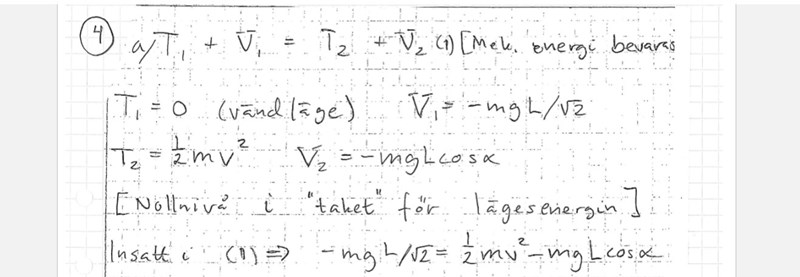 ④ a/ T₁ + V₁ = T₂ + V₂ (1) [Mek. energi bevaras
T₁ = 0 (vändläge) V₁ = -mgL/√2
T₂ = ½mv² V₂ = -mgLcosα
[Nollnivå i "taket" för lägesenergin]
Insatt i (1) ⇒ -mgL/√2 = ½mv² - mgLcosα